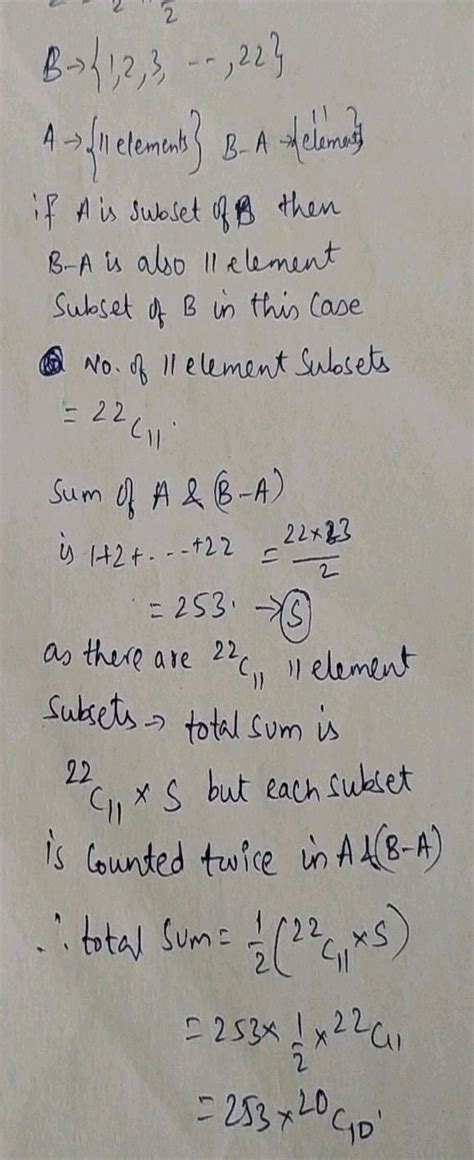 B→{1,2,3, --,22}
A→{11 elements} B-A→{11 elements}
if A is subset of B then
B-A is also 11 element
Subset of B in this case
No. of 11 element Subsets
= 22C11.
Sum of A & (B-A)
is 1+2+...+22 = 22×23/2
= 253. → S
as there are 22C11 11 element
Subsets → total sum is
22C11 × S but each subset
is Counted twice in A&(B-A)
∴ total sum = 1/2 (22C11 × S)
= 253 × 1/2 × 22C11
= 253 × 20C10.